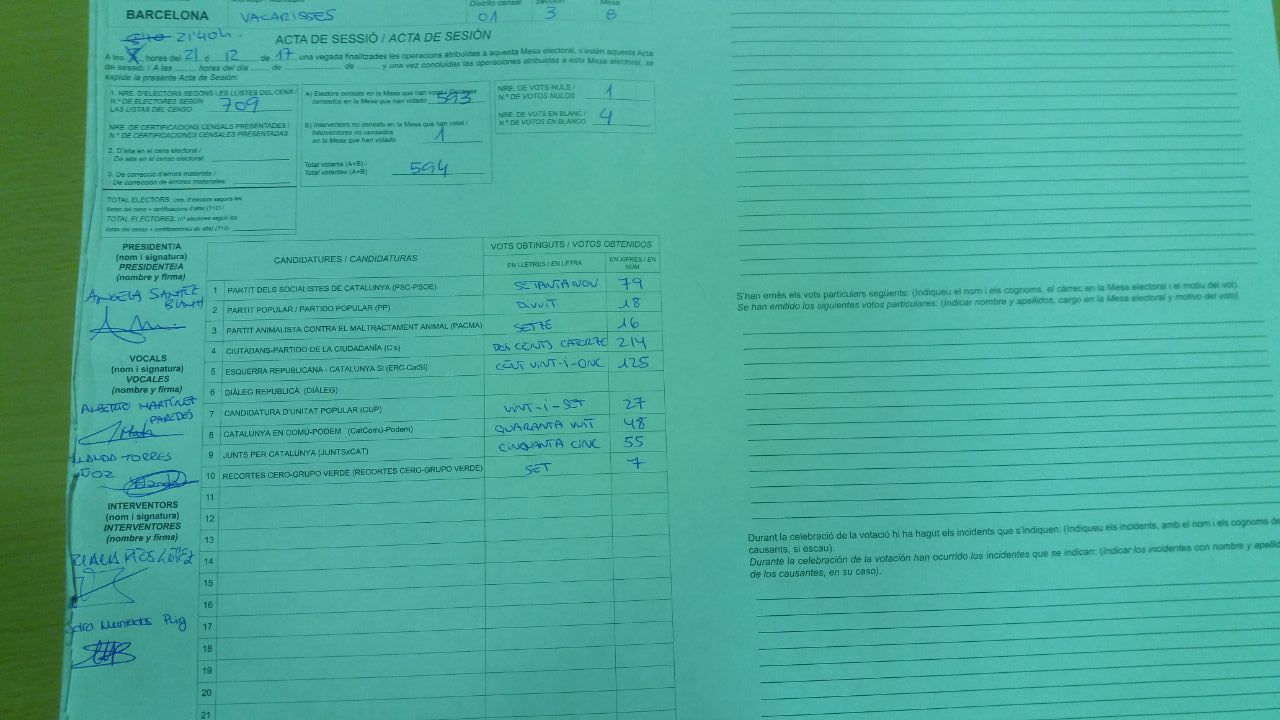 BARCELONA VACARISSES Distrito censal 01 3 Mesa B
21'40h.
ACTA DE SESSIÓ / ACTA DE SESIÓN
A les hores del 21 d 12 de 17, una vegada finalitzades les operacions atribuïdes a aquesta Mesa electoral, s'estén aquesta Acta
de sessió. / A las horas del día de de y una vez concluidas las operaciones atribuidas a esta Mesa electoral, se
expide la presente Acta de Sesión.
1. NRE. D'ELECTORS SEGONS LES LLISTES DEL CENS /
N.º DE ELECTORES SEGÚN
LAS LISTAS DEL CENSO 709
NRE. DE CERTIFICACIONS CENSALS PRESENTADES /
N.º DE CERTIFICACIONES CENSALES PRESENTADAS
2. D'alta en el cens electoral /
De alta en el censo electoral
3. De correcció d'errors materials /
De corrección de errores materiales
TOTAL ELECTORS:
TOTAL ELECTORES:
A) Electors censats en la Mesa que han votat / Electores
censados en la Mesa que han votado 593
B) Interventors no censats en la Mesa que han votat /
Interventores no censados
en la Mesa que han votado 1
Total votants (A+B) /
Total votantes (A+B) 594
NRE. DE VOTS NULS /
N.º DE VOTOS NULOS 1
NRE. DE VOTS EN BLANC /
N.º DE VOTOS EN BLANCO 4
PRESIDENT/A
(nom i signatura)
PRESIDENTE/A
(nombre y firma)
ANGELA
VOCALS
(nom i signatura)
VOCALES
(nombre y firma)
ALBERTO MARTÍNEZ
PAREDES
TORRES
INTERVENTORS
(nom i signatura)
INTERVENTORES
(nombre y firma)
Puig
CANDIDATURES / CANDIDATURAS VOTS OBTINGUTS / VOTOS OBTENIDOS
EN LLETRES / EN LETRA EN XIFRES / EN NÚM.
1 PARTIT DELS SOCIALISTES DE CATALUNYA (PSC-PSOE) SETANTA NOU 79
2 PARTIT POPULAR / PARTIDO POPULAR (PP) DIVUIT 18
3 PARTIT ANIMALISTA CONTRA EL MALTRACTAMENT ANIMAL (PACMA) SETZE 16
4 CIUTADANS-PARTIDO DE LA CIUDADANÍA (C's) DOS CENTS CATORZE 214
5 ESQUERRA REPUBLICANA - CATALUNYA SÍ (ERC-CatSí) CENT VINT-I-CINC 125
6 DIÀLEG REPUBLICÀ (DIÀLEG)
7 CANDIDATURA D'UNITAT POPULAR (CUP) VINT-I-SET 27
8 CATALUNYA EN COMÚ-PODEM (CatComú-Podem) QUARANTA VUIT 48
9 JUNTS PER CATALUNYA (JUNTSxCAT) CINQUANTA CINC 55
10 RECORTES CERO-GRUPO VERDE (RECORTES CERO-GRUPO VERDE) SET 7
11
12
13
14
15
16
17
18
19
20
21
S'han emès els vots particulars següents: (Indiqueu el nom i els cognoms, el càrrec en la Mesa electoral i el motiu del vot).
Se han emitido los siguientes votos particulares: (Indicar nombre y apellidos, cargo en la Mesa electoral y motivo del voto).
Durant la celebració de la votació hi ha hagut els incidents que s'indiquen: (Indiqueu els incidents, amb el nom i els cognoms de
causants, si escau).
Durante la celebración de la votación han ocurrido los incidentes que se indican: (Indicar los incidentes con nombre y
de los causantes, en su caso).